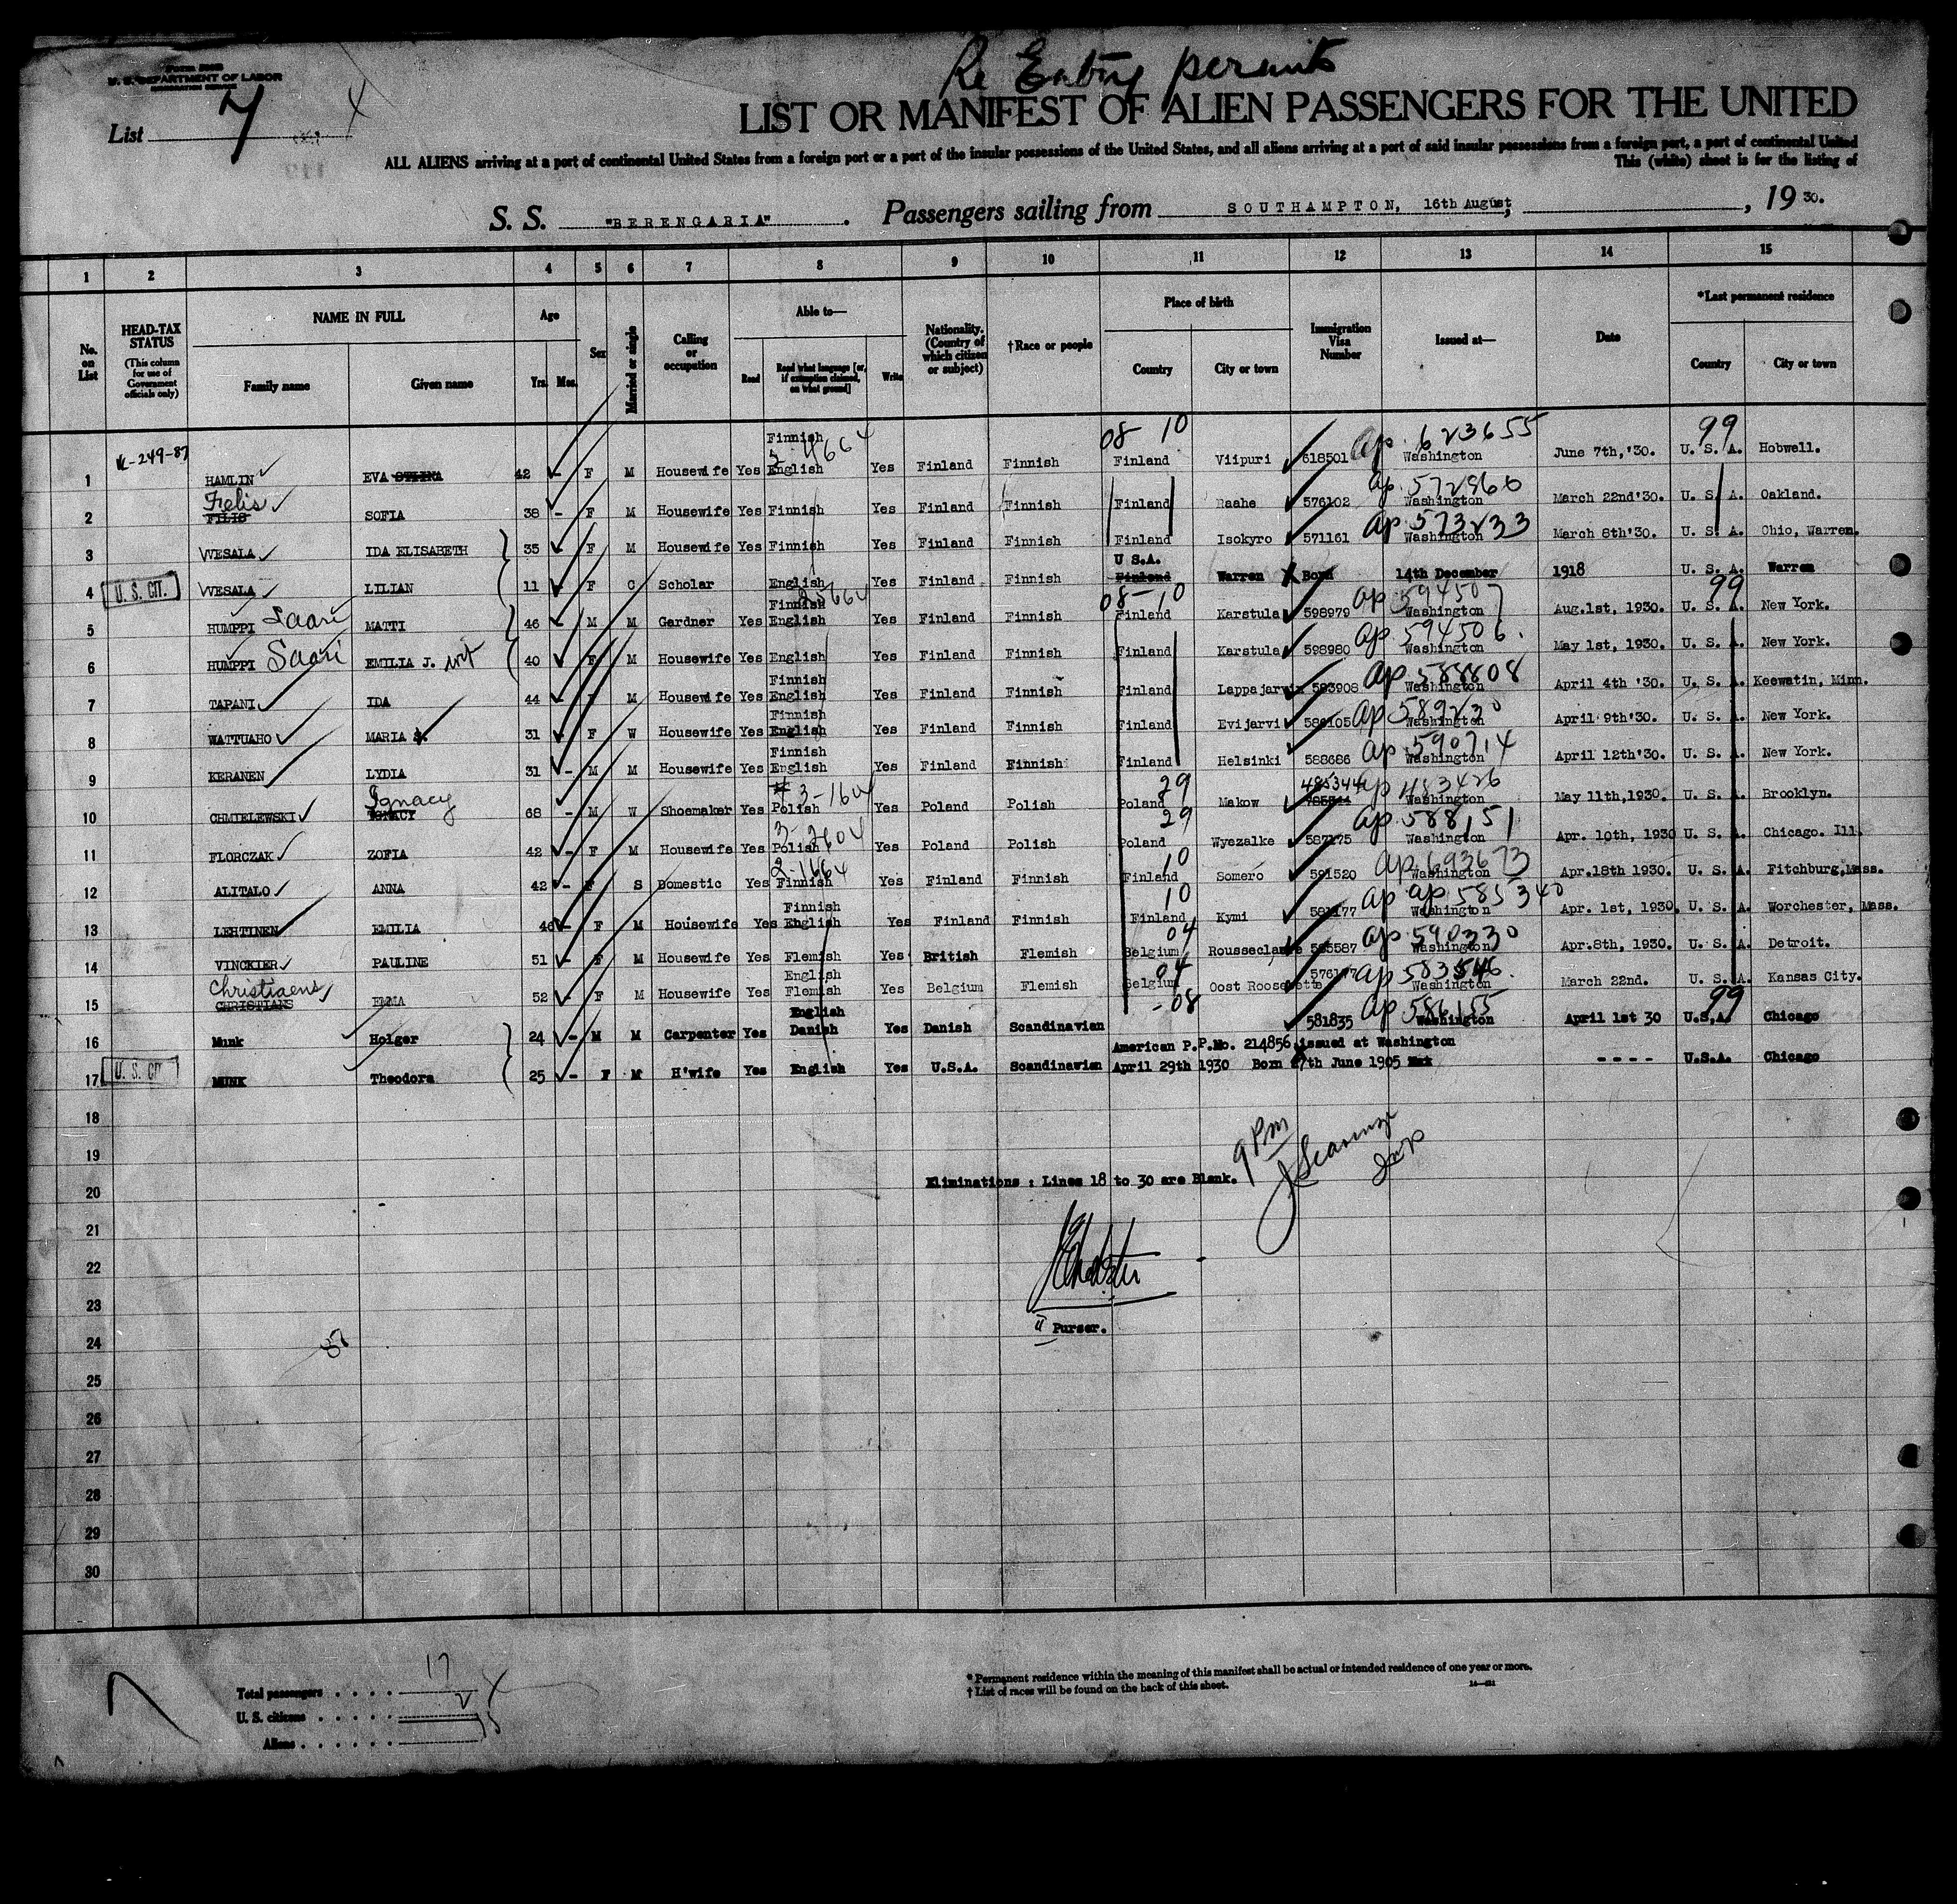 Re Entry permits
U. S. DEPARTMENT OF LABOR
List 7
LIST OR MANIFEST OF ALIEN PASSENGERS FOR THE UNITED
ALL ALIENS arriving at a port of continental United States from a foreign port or a part of the insular possessions of the United States, and all aliens arriving at a port of said insular possessions from a foreign port, a part of continental United
This (white) sheet is for the listing of
S. S. "BERENGARIA". Passengers sailing from SOUTHAMPTON, 16th August, 1930.
1 2 3 4 5 6 7 8 9 10 11 12 13 14 15
No. on List
HEAD-TAX STATUS (This column for use of Government officials only)
NAME IN FULL Family name Given name
Age Yrs. Mos.
Sex
Married or single
Calling or occupation
Able to— Read Read what language [or, if exemption claimed, on what ground] Write
Nationality. (Country of which citizen or subject)
†Race or people
Place of birth Country City or town
Immigration Visa Number
Issued at—
Date
*Last permanent residence Country City or town
08 10 ap. 623655 99
1 HAMLIN EVA 42 - F M Housewife Yes Finnish English Yes Finland Finnish Finland Viipuri 618501 Washington June 7th,'30. U. S. A. Hobwell.
Felis ap. 572966
2 FILIS SOFIA 38 - F M Housewife Yes Finnish Yes Finland Finnish Finland Raahe 576102 Washington March 22nd'30. U. S. A. Oakland.
ap 573233
3 WESALA IDA ELISABETH 35 F M Housewife Yes Finnish Yes Finland Finnish Finland Isokyro 571161 Washington March 8th'30. U. S. A. Ohio, Warren.
U. S. CIT. U S.A.
4 WESALA LILIAN 11 F C Scholar English Yes Finland Finnish Finland Warren X Born 14th December 1918 U. S. A. Warren
08-10 ap 594507 99
5 HUMPPI Saari MATTI 46 - M M Gardner Yes Finnish English Yes Finland Finnish Finland Karstula 598979 Washington Aug.1st, 1930. U. S. A. New York.
ap 594506.
6 HUMPPI Saari EMILIA J. wf 40 F M Housewife Yes English Yes Finland Finnish Finland Karstula 598980 Washington May 1st, 1930. U. S. A. New York.
ap 588808
7 TAPANI IDA 44 - F M Housewife Yes Finnish English Yes Finland Finnish Finland Lappajarvi 593908 Washington April 4th '30. U. S. A. Keewatin, Minn.
ap 589230
8 WATTUAHO MARIA 31 F W Housewife Yes Finnish English Yes Finland Finnish Finland Evijarvi 586105 Washington April 9th'30. U. S. A. New York.
ap 590714
9 KERANEN LYDIA 31 - M M Housewife Yes Finnish English Yes Finland Finnish Finland Helsinki 588686 Washington April 12th'30. U. S. A. New York.
Ignacy 29 485344 ap 483426
10 CHMIELEWSKI IGNACY 68 - M W Shoemaker Yes Polish Yes Poland Polish Poland Makow Washington May 11th,1930. U. S. A. Brooklyn.
29 ap 588151
11 FLORCZAK ZOFIA 42 - F M Housewife Yes Polish Yes Poland Polish Poland Wyezalke 587175 Washington Apr. 10th, 1930 U. S. A. Chicago. Ill.
10 ap 693673
12 ALITALO ANNA 42 - F S Domestic Yes Finnish Yes Finland Finnish Finland Somero 591520 Washington Apr.18th 1930. U. S. A. Fitchburg,Mass.
10 ap ap 585340
13 LEHTINEN EMILIA 46 - F M Housewife Yes Finnish English Yes Finland Finnish Finland Kymi Washington Apr. 1st, 1930. U. S. A. Worchester, Mass.
04 ap 590330
14 VINCKIER PAULINE 51 - F M Housewife Yes Flemish Yes British Flemish Belgium Washington Apr.8th, 1930. U. S. A. Detroit.
Christiaens 04 ap 583546.
15 CHRISTIANS EMMA 52 - F M Housewife Yes English Flemish Yes Belgium Flemish Belgium Oost Washington March 22nd. U. S. A. Kansas City.
-08 ap 586155 99
16 Munk Holger 24 - M M Carpenter Yes English Danish Yes Danish Scandinavian 581835 Washington April 1st 30 U.S.A. Chicago
American P.P.No. 214856 issued at Washington
U. S. CIT
17 MUNK Theodora 25 - F M H'wife Yes English Yes U.S.A. Scandinavian April 29th 1930 Born 27th June 1905 - - - - U.S.A. Chicago
18
19
9 Pm
20 Eliminations : Lines 18 to 30 are Blank.
21
22
23
Purser.
24
25
26
27
28
29
30
Total passengers . . . . 17
U. S. citizens . . . . . 2
Aliens . . . . . . 15
* Permanent residence within the meaning of this manifest shall be actual or intended residence of one year or more.
† List of races will be found on the back of this sheet.